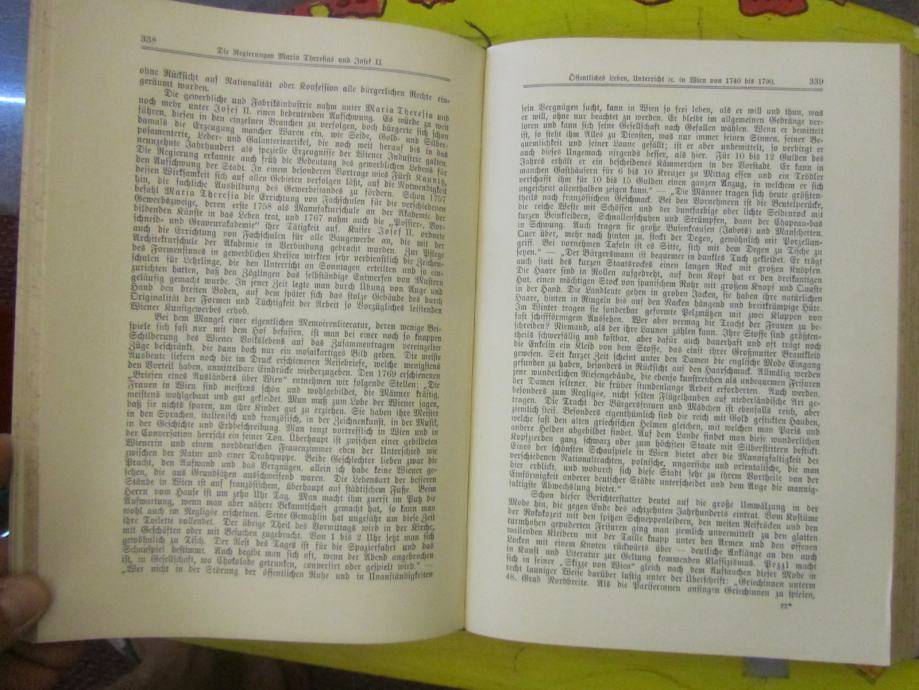 338
Die Regierungen Maria Theresias und Josef II.
ohne Rücksicht auf Nationalität oder Konfession alle bürgerlichen Rechte ein-
geräumt wurden.
Die gewerbliche und Fabriksindustrie nahm unter Maria Theresia und
noch mehr unter Josef II. einen bedeutenden Aufschwung. Es würde zu weit
führen, diesen in den einzelnen Branchen zu verfolgen, doch bürgerte sich schon
damals die Erzeugung mancher Waren ein, wie Seide, Gold- und Silber-
posamenterie, Leder- und Galanterieartikel, die noch weit herauf bis in das
neunzehnte Jahrhundert als spezielle Erzeugnisse der Wiener Industrie galten.
Die Regierung erkannte auch früh die Bedeutung des gewerblichen Lebens für
den Aufschwung der Stadt. In einem besonderen Vortrage wies Fürst Kaunitz,
dessen Wirksamkeit sich auf allen Gebieten verfolgen läßt, auf die Notwendigkeit
hin, die fachliche Ausbildung des Gewerbestandes zu fördern. Schon 1757
befahl Maria Theresia die Errichtung von Fachschulen für die verschiedenen
Gewerbszweige, deren erste 1758 als Manufakturschule an der Akademie der
bildenden Künste in das Leben trat, und 1767 nahm auch die „Possier-, Ver-
schneid- und Graveurakademie“ ihre Tätigkeit auf. Kaiser Josef II. ordnete
auch die Errichtung von Fachschulen für alle Baugewerbe an, die mit der
Architekturschule der Akademie in Verbindung gebracht wurden. Zur Pflege
des Formensinnes in gewerblichen Kreisen wirkten sehr verdienstlich die Zeichen-
schulen für Lehrlinge, die den Unterricht an Sonntagen erhielten und so ein-
zurichten hatten, daß den Zöglingen das selbständige Entwerfen von Mustern
geläufig gemacht wurde. In jener Zeit legte man durch Übung von Auge und
Hand den breiten Boden, auf dem später sich das stolze Gebäude des durch
Originalität der Formen und Tüchtigkeit der Arbeit so Vorzügliches leistenden
Wiener Kunstgewerbes erhob.
Bei dem Mangel einer eigentlichen Memoirenliteratur, deren wenige Bei-
spiele sich fast nur mit dem Hof befassen, ist man bei einer noch so knappen
Schilderung des Wiener Volkslebens auf das Zusammentragen vereinzelter
Züge beschränkt, die dann doch nur ein mosaikartiges Bild geben. Die meiste
Ausbeute liefern noch die im Druck erschienenen Reisebriefe, welche wenigstens
den Vorteil haben, unmittelbare Eindrücke wiederzugeben. Den 1769 erschienenen
„Briefen eines Ausländers über Wien“ entnehmen wir folgende Stellen: „Die
Frauen in Wien sind meistens schön und wohlgebildet, die Männer kräftig,
meistens wohlgebaut und gut gekleidet. Man muß zum Lobe der Wiener sagen,
daß sie nichts sparen, um ihre Kinder gut zu erziehen. Sie haben ihre Meister
in den Sprachen, italienisch und französisch, in der Zeichnenkunst, in der Musik,
in der Geschichte und Erdbeschreibung. Man tanzt vortrefflich in Wien und in
der Conversation herrscht ein feiner Ton. Überhaupt ist zwischen einer gebildeten
Wienerin und einem norddeutschen Frauenzimmer eben der Unterschied wie
zwischen der Natur und einer Drahtpuppe. Beide Geschlechter lieben zwar die
Pracht, den Aufwand und das Vergnügen, allein ich habe keine Wiener ge-
sehen, die aus Grundsätzen ausschweifend waren. Die Lebensart der besseren
Stände in Wien ist auf französischem, überhaupt auf städtischem Fuße. Beim
Herrn vom Hause ist um zehn Uhr Tag. Man macht ihm zuerst im Putz die
Aufwartung, wenn man aber nähere Bekanntschaft gemacht hat, so kann man
wohl auch im Negligée erscheinen. Seine Gemahlin hat ungefähr um diese Zeit
ihre Toilette vollendet. Der übrige Theil des Vormittags wird in der Kirche,
mit Geschäften oder mit Besuchen zugebracht. Von 1 bis 2 Uhr setzt man sich
gewöhnlich zu Tisch. Der Rest des Tages ist für die Spazierfahrt und das
Schauspiel bestimmt. Auch begibt man sich oft, wenn der Abend angebrochen
ist, in Gesellschaft, wo Chokolade getrunken, conversirt oder gespielt wird.“ —
„Wer nicht in der Störung der öffentlichen Ruhe und in Unanständigkeiten
Öffentliches Leben, Unterricht ec. in Wien von 1740 bis 1790.
339
sein Vergnügen sucht, kann in Wien so frei leben, als er will und thun, was
er will, ohne nur beachtet zu werden. Er bleibt im allgemeinen Gedränge ver-
loren und kann sich seine Gesellschaft nach Gefallen wählen. Wenn er bemittelt
ist, so steht ihm Alles zu Diensten, was nur immer seinen Sinnen, seiner Be-
quemlichkeit und seiner Laune gefällt; ist er aber unbemittelt, so verbirgt er
auch dieses Ungemach nirgends besser, als hier. Für 10 bis 12 Gulden des
Jahres erhält er ein bescheidenes Kämmerchen in der Vorstadt. Er kann in
manchen Gasthäusern für 6 bis 10 Kreuzer zu Mittag essen und ein Trödler
verschafft ihm für 10 bis 15 Golden einen ganzen Anzug, in welchem er sich
ungescheut allenthalben zeigen kann.“ — „Die Männer tragen sich heute größten-
theils nach französischem Geschmack. Bei den Vornehmern ist die Beutelperücke,
die reiche Weste mit Schößen und der buntfarbige oder lichte Seidenrock mit
kurzen Beinkleidern, Schnallenschuhen und Strümpfen, dann der Chapeau-bas
in Schwung. Auch tragen sie große Busenkrausen (Jabots) und Manschetten.
Quer über, mehr nach hinten zu, steckt der Degen, gewöhnlich mit Porzellan-
griff. Bei vornehmen Tafeln ist es Sitte, sich mit dem Degen zu Tische zu
setzen.“ — „Der Bürgersmann ist bequemer in dunkles Tuch gekleidet. Er trägt
auch statt des kurzen Staatsrockes einen langen Rock mit großen Knöpfen.
Die Haare sind in Rollen aufgedreht, auf dem Kopf hat er den dreikantigen
Hut, einen mächtigen Stock von spanischem Rohr mit großem Knopf und Quaste
in der Hand. Die Landleute geben in groben Jacken, sie haben ihre natürlichen
Haare, hinten in Ringeln bis auf den Nacken hängend und dreikrämpige Hüte.
Im Winter tragen sie sonderbar geformte Pelzmützen mit zwei Klappen von
fast schiffförmigem Aussehen. Wer aber vermag die Tracht der Frauen zu be-
schreiben? Niemand, als der ihre Launen zählen kann. Ihre Stoffe sind größten-
theils schwerfällig und kostbar, aber dafür auch dauerhaft und oft trägt noch
die Enkelin ein Kleid von dem Stoffe, das einst ihrer Großmutter Brautkleid
gewesen. Seit kurzer Zeit scheint unter den Damen die englische Mode Eingang
gefunden zu haben, besonders in Rücksicht auf den Haarschmuck. Allmälig werden
jene wunderlichen Riesengebäude, die ebenso kunstreichen als unbequemen Frisuren
der Damen seltener, die früher stundenlange Arbeit erforderten. Auch werden,
besonders zum Negligée, nicht selten Flügelhauben auf niederländische Art ge-
tragen. Die Tracht der Bürgersfrauen und Mädchen ist ebenfalls reich, aber
ziemlich steif. Besonders eigenthümlich sind die reich mit Gold gestickten Hauben,
welche fast den alten griechischen Helmen gleichen, mit welchen man Paris und
andere Helden abgebildet findet. Auf dem Lande findet man diese wunderlichen
Kopfzierden ganz schwarz oder zum höchsten Staate mit Silberflittern bestickt.
Eines der schönsten Schauspiele in Wien bietet aber die Mannigfaltigkeit der
verschiedenen Nationaltrachten, polnische, ungarische und orientalische, die man
hier erblickt, und wodurch sich diese Stadt sehr zu ihrem Vortheile von der
Einförmigkeit anderer deutscher Städte unterscheidet und dem Auge die mannig-
faltigste Abwechslung bietet.“
Schon dieser Berichterstatter deutet auf die große Umwälzung in der
Mode hin, die gegen Ende des achtzehnten Jahrhunderts eintrat. Vom Kostüme
der Rokokozeit mit den spitzen Schneppenleiben, den weiten Reifröcken und den
turmhohen gepuderten Frisuren ging man ziemlich unvermittelt zu den glatten
wallenden Kleidern mit der Taille knapp unter den Armen und den offenen
Locken mit einem Knoten rückwärts über — deutliche Anklänge an den auch
in Kunst und Literatur zur Geltung kommenden Klassizismus. Pezzl macht
sich in seiner „Skizze von Wien“ gleich nach dem Auftauchen dieser Mode in
recht launiger Weise darüber lustig unter der Überschrift: „Griechinnen unterm
48. Grad Nordbreite. Als die Pariserinnen anfingen Griechinnen zu spielen,
22*